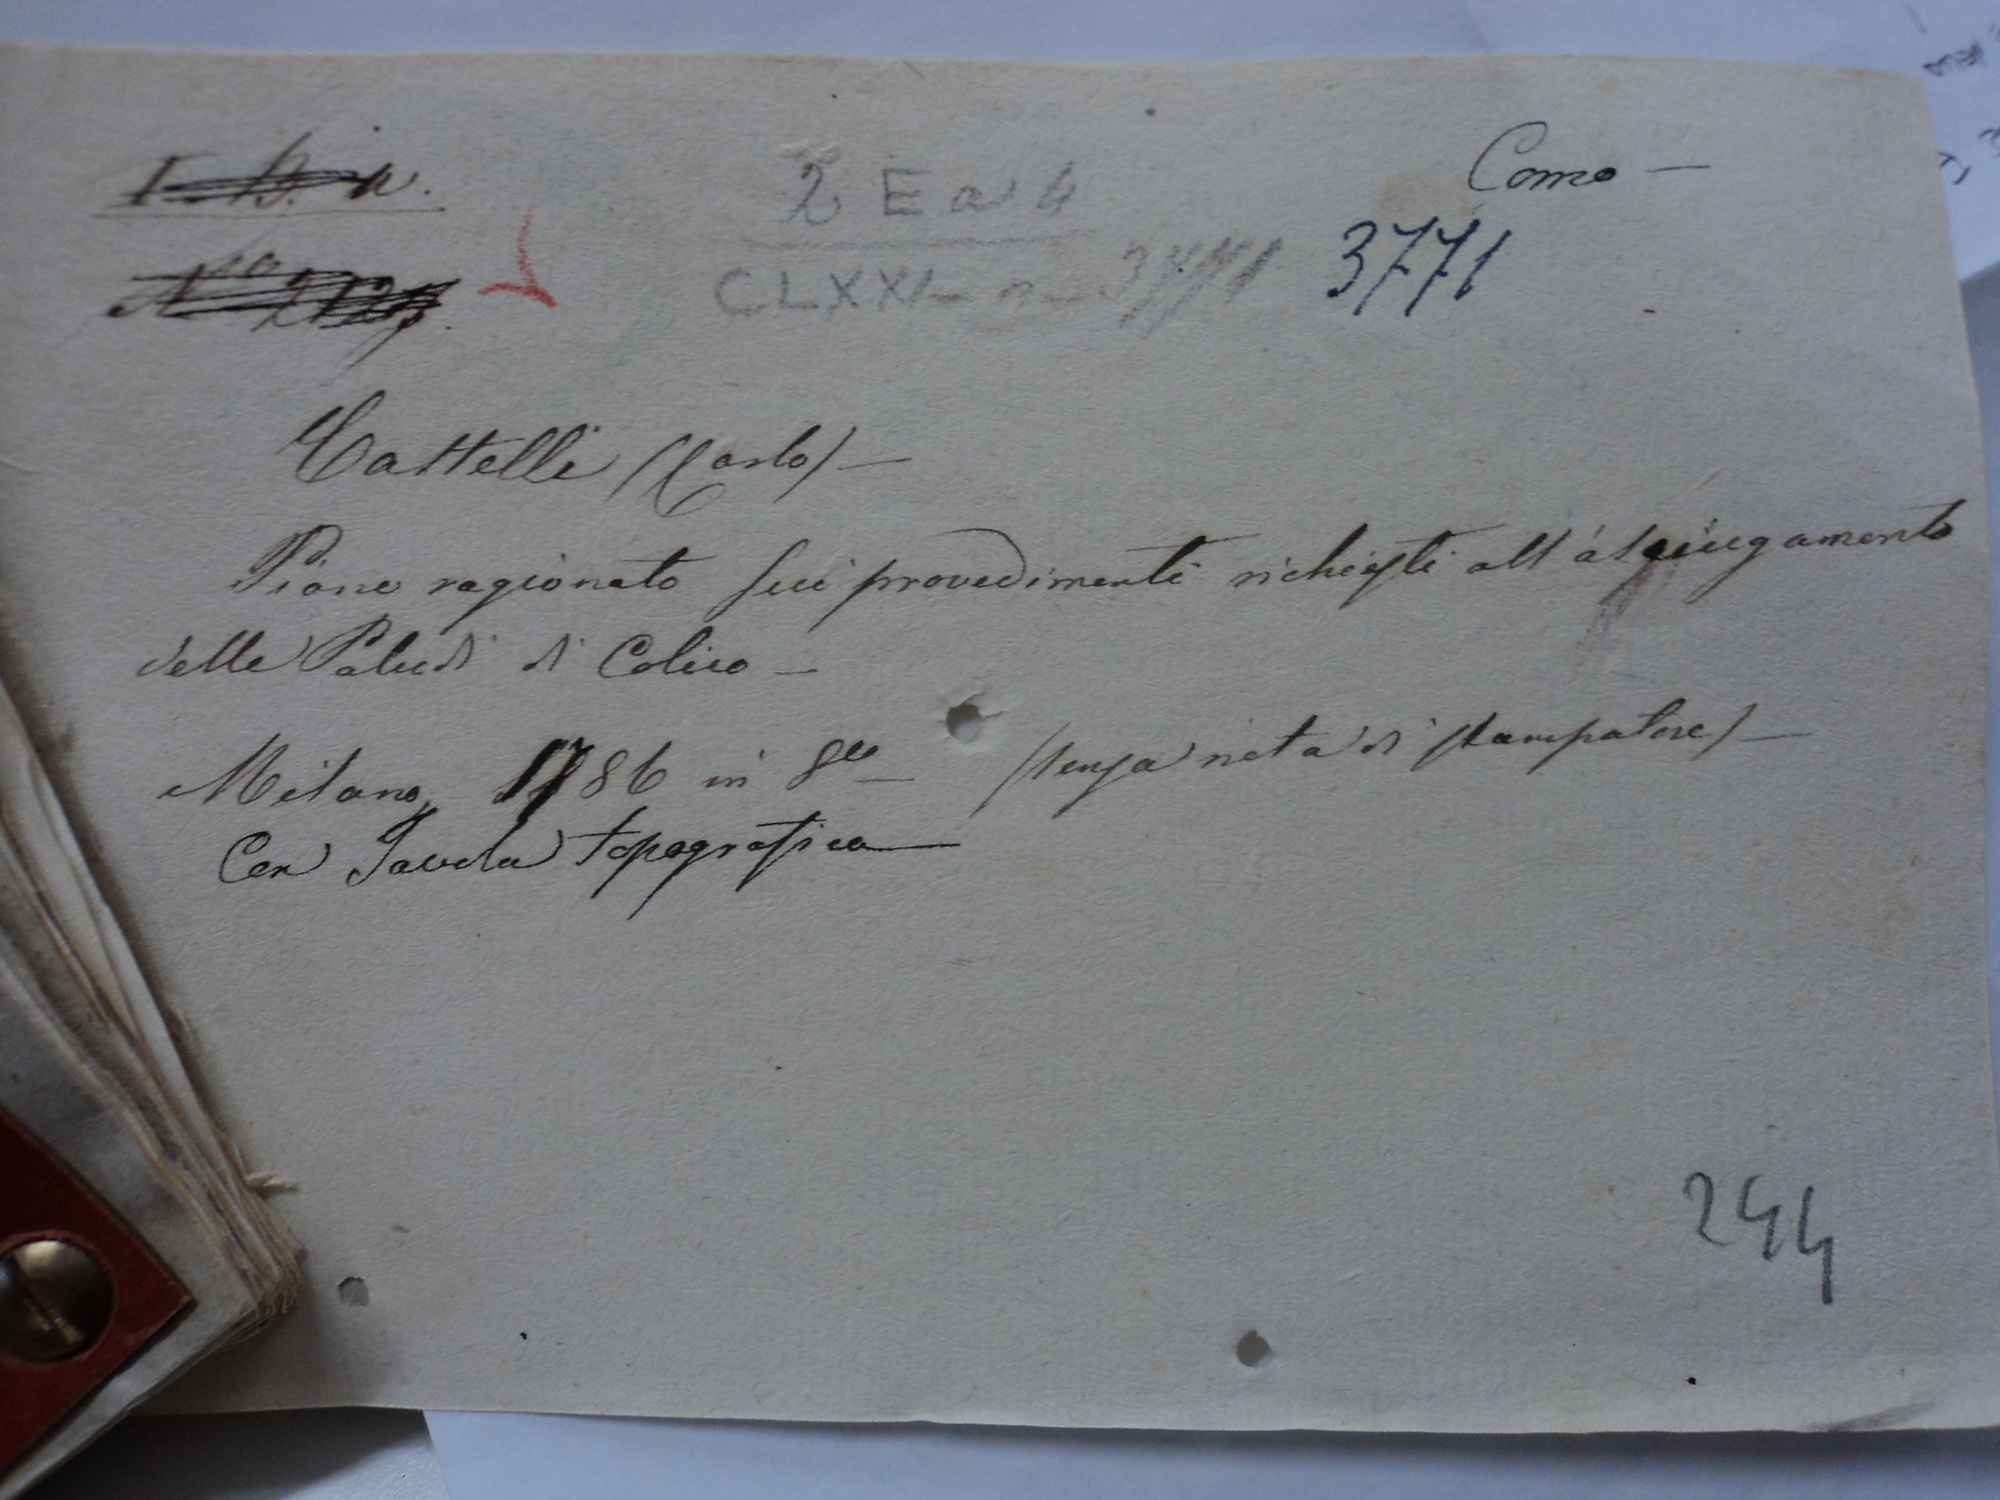 Como —
2 E a 4
CLXXI - n - 3771 3771
Cattelli (Carlo) —
Piano ragionato sui provedimenti richiesti all'asciugamento
delle Paludi di Colico —
Milano, 1786 in 8vo — (senza nota di stampatore) —
Con Tavola topografica —
244